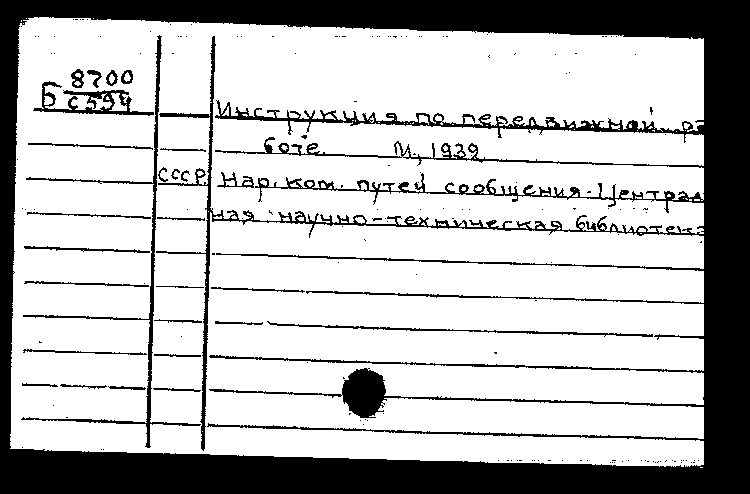 8700
Б С594
Инструкция по передвижной ра
боте. М., 1932
СССР. Нар. ком. путей сообщения. Централь
ная научно-техническая библиотека